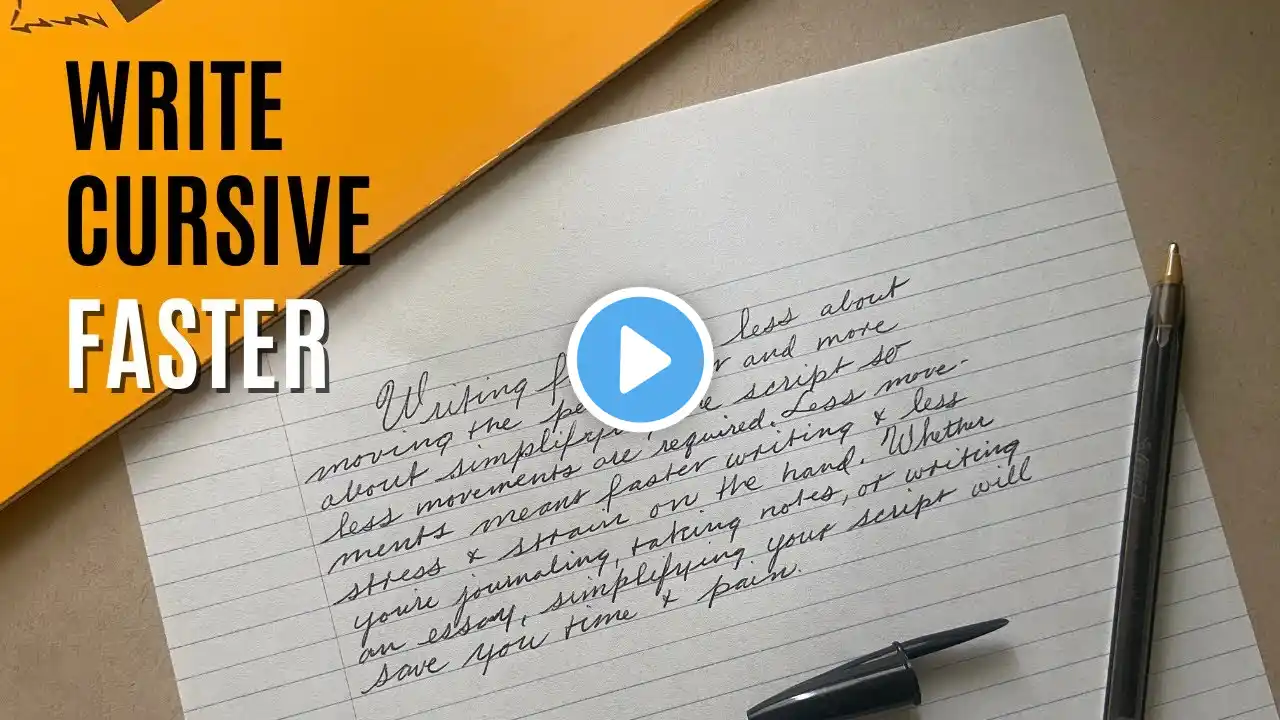 WRITE
CURSIVE
FASTER
Writing less about
moving the and more
about script so
less movements are required. Less move-
ments means faster writing & less
stress & strain on the hand. Whether
you're journaling, taking notes, or writing
an essay, simplifying your script will
save you time & pain.